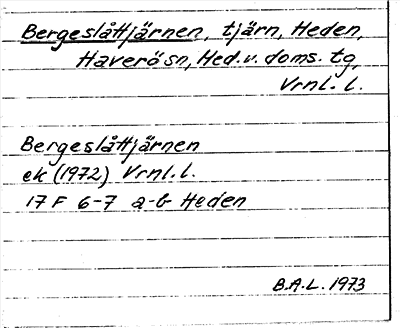 Bergeslåttjärnen, tjärn, Heden,
Haverö sn, Hed.v. doms. tg,
Vrnl. l.
Bergeslåttjärnen
ek (1972) Vrnl. l.
17 F 6-7 a-b Heden
B.A.L. 1973